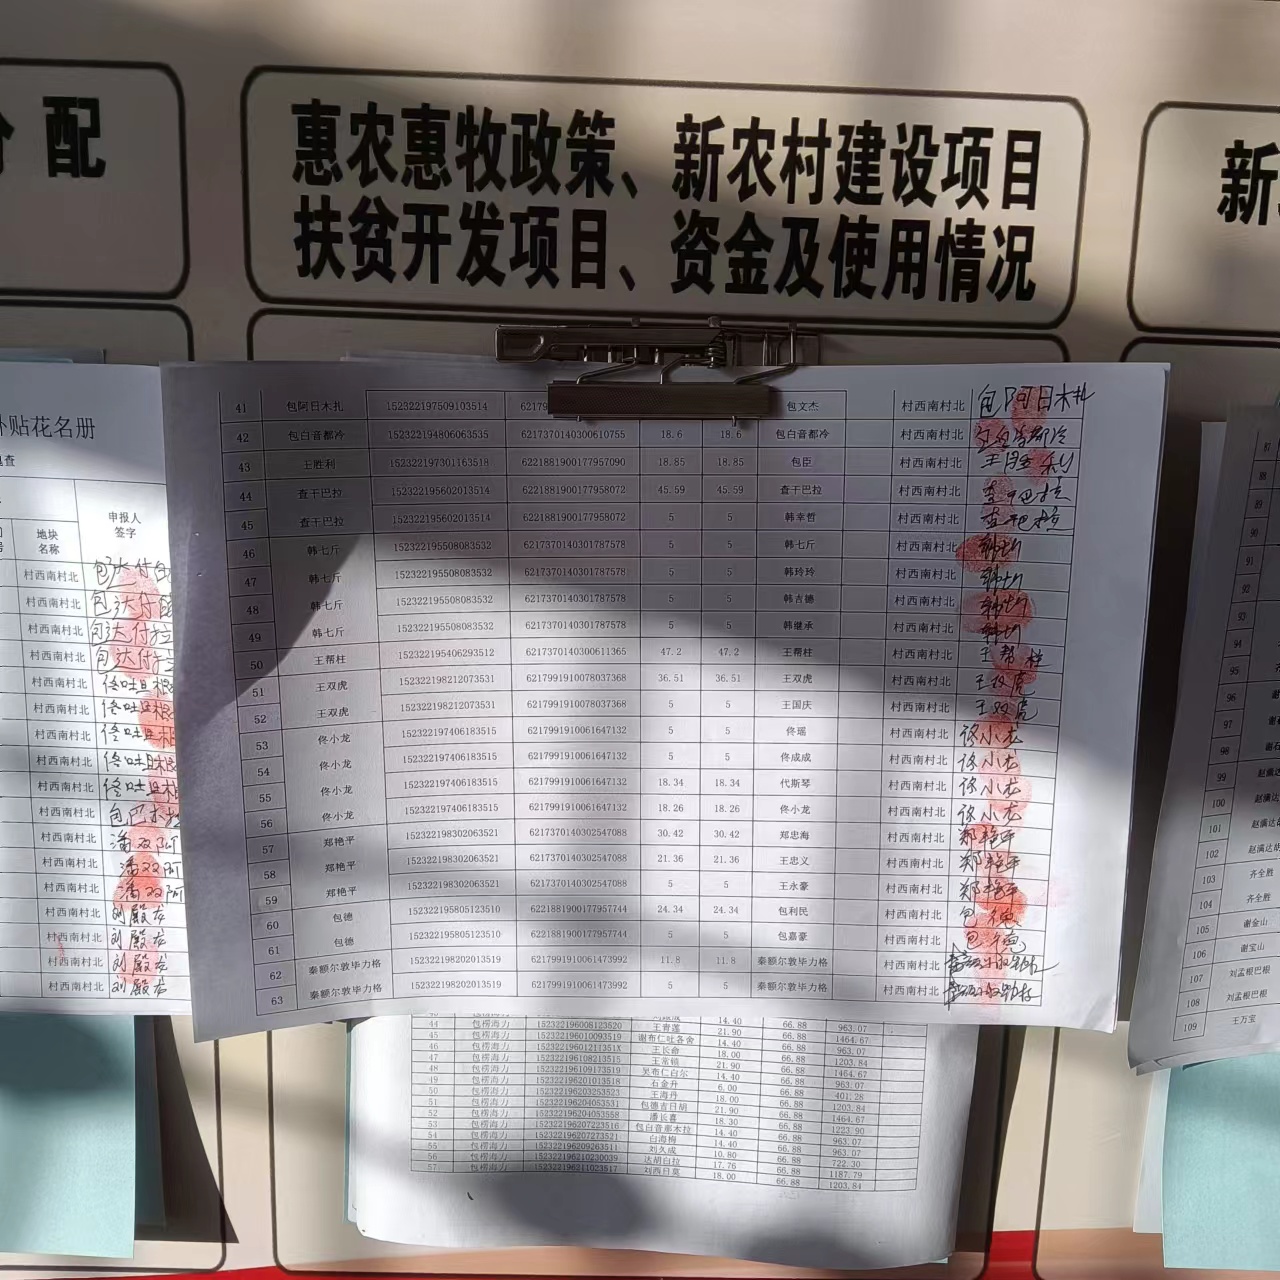 分 配
惠农惠牧政策、新农村建设项目
扶贫开发项目、资金及使用情况
新
补贴花名册
地块名称 申报人签字
41 包阿日木扎 152322197509103514 6217 包文杰 村西南村北 包阿日木扎
42 包白音都冷 152322194806063535 6217370140300610755 18.6 18.6 包白音都冷 村西南村北 包白音都冷
43 王胜利 152322197301163518 6221881900177957090 18.85 18.85 包臣 村西南村北 王胜利
44 查干巴拉 152322195602013514 6221881900177958072 45.59 45.59 查干巴拉 村西南村北 查干巴拉
45 查干巴拉 152322195602013514 6221881900177958072 5 5 韩幸哲 村西南村北 查干巴拉
46 韩七斤 152322195508083532 6217370140301787578 5 5 韩七斤 村西南村北 韩七斤
47 韩七斤 152322195508083532 6217370140301787578 5 5 韩玲玲 村西南村北 韩七斤
48 韩七斤 152322195508083532 6217370140301787578 5 5 韩吉德 村西南村北 韩七斤
49 韩七斤 152322195508083532 6217370140301787578 5 5 韩继承 村西南村北 韩七斤
50 王帮柱 152322195406293512 6217370140300611365 47.2 47.2 王帮柱 村西南村北 王帮柱
51 王双虎 152322198212073531 6217991910078037368 36.51 36.51 王双虎 村西南村北 王双虎
52 王双虎 152322198212073531 6217991910078037368 5 5 王国庆 村西南村北 王双虎
53 佟小龙 152322197406183515 6217991910061647132 5 5 佟瑶 村西南村北 佟小龙
54 佟小龙 152322197406183515 6217991910061647132 5 5 佟成成 村西南村北 佟小龙
55 佟小龙 152322197406183515 6217991910061647132 18.34 18.34 代斯琴 村西南村北 佟小龙
56 佟小龙 152322197406183515 6217991910061647132 18.26 18.26 佟小龙 村西南村北 佟小龙
57 郑艳平 152322198302063521 6217370140302547088 30.42 30.42 郑忠海 村西南村北 郑艳平
58 郑艳平 152322198302063521 6217370140302547088 21.36 21.36 王忠义 村西南村北 郑艳平
59 郑艳平 152322198302063521 6217370140302547088 5 5 王永豪 村西南村北 郑艳平
60 包德 152322195805123510 6221881900177957744 24.34 24.34 包利民 村西南村北 包德
61 包德 152322195805123510 6221881900177957744 5 5 包嘉豪 村西南村北 包德
62 秦额尔敦毕力格 152322198202013519 6217991910061473992 11.8 11.8 秦额尔敦毕力格 村西南村北
63 秦额尔敦毕力格 152322198202013519 6217991910061473992 5 5 秦额尔敦毕力格 村西南村北
村西南村北
村西南村北
村西南村北
村西南村北
村西南村北
村西南村北
村西南村北
村西南村北
村西南村北
村西南村北
村西南村北 潘双阿
村西南村北 潘双阿
村西南村北 潘双阿
村西南村北 刘殿龙
村西南村北 刘殿龙
村西南村北 刘殿龙
村西南村北 刘殿龙
44 包楞海力 152322196008123520 王青莲 21.90 66.88 963.07
45 包楞海力 152322196010093519 谢布仁吐各舍 14.40 66.88 1464.67
46 包楞海力 15232219601211351X 王长命 18.00 66.88 963.07
47 包楞海力 152322196108213515 王常锁 21.90 66.88 1203.84
48 包楞海力 152322196109173519 吴布仁白尔 14.40 66.88 1464.67
49 包楞海力 152322196201013518 石金升 6.00 66.88 963.07
50 包楞海力 152322196203253523 王海丹 18.00 66.88 401.28
51 包楞海力 152322196204053531 包德吉日胡 21.90 66.88 1203.84
52 包楞海力 152322196204053558 潘长喜 18.30 66.88 1464.67
53 包楞海力 152322196207223516 包白音那木拉 14.40 66.88 1223.90
54 包楞海力 152322196207273521 白海梅 14.40 66.88 963.07
55 包楞海力 152322196209263511 刘久成 10.80 66.88 963.07
56 包楞海力 152322196210230039 达胡白拉 17.76 66.88 722.30
57 包楞海力 152322196211023517 刘西日莫 18.00 66.88 1187.79
66.88 1203.84
90
91
92
93
94
95
96
97
98
99
100
101
102
103 齐全胜
104 齐全胜
105 谢金山
106 谢宝山
107 刘孟根巴根
108 刘孟根巴根
109 王万宝